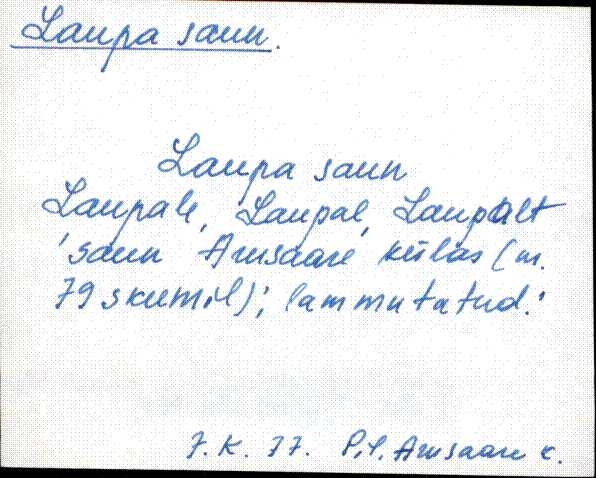 Laupa saun.
Laupa saun
Laupale, Laupal, Laupalt
'saun Arusaare külas (nr.
79 skeemil); lammutatud.'
J. K. 77. P.-J. Arusaare k.